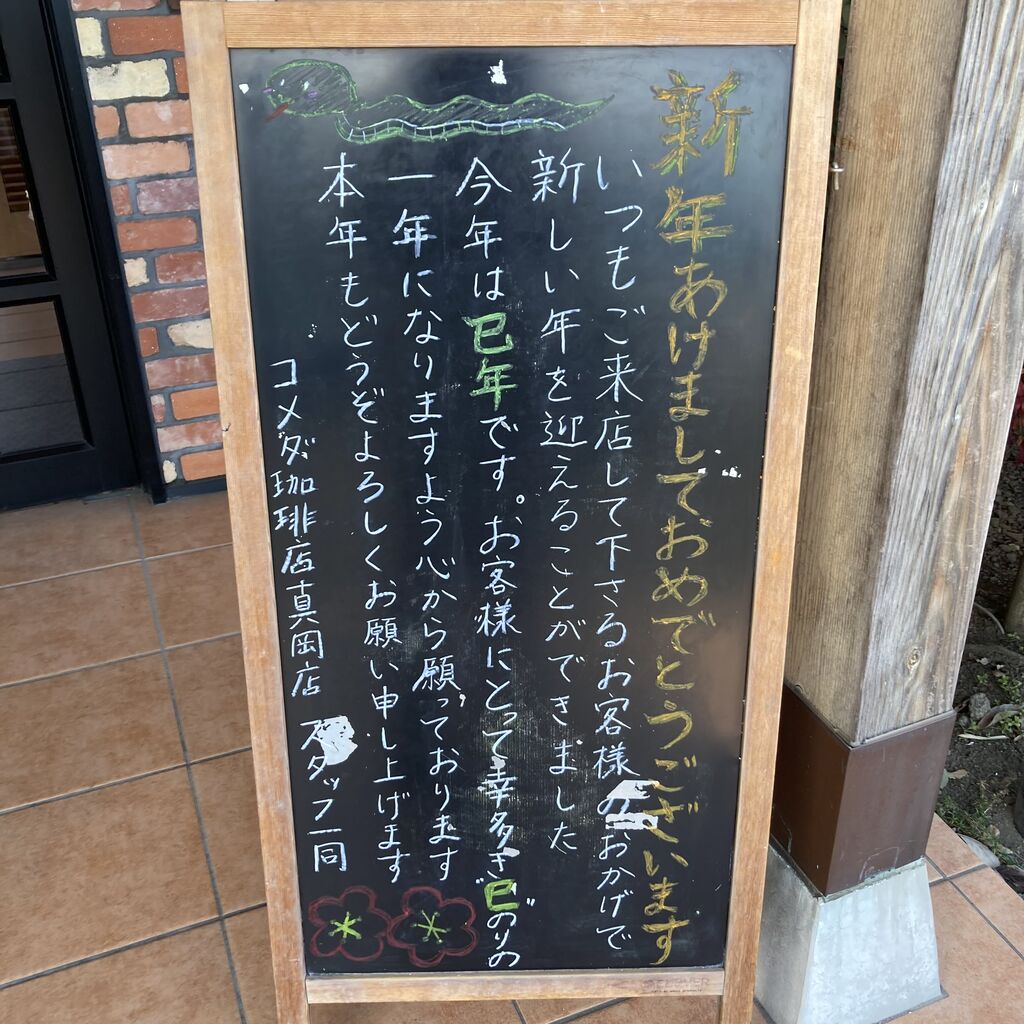 新年あけましておめでとうございます
いつもご来店して下さるお客様のおかげで
新しい年を迎えることができました
今年は巳年です。お客様にとって幸多き〝巳のりの
一年になりますよう心から願っております
本年もどうぞよろしくお願い申し上げます
コメダ珈琲店真岡店 スタッフ一同